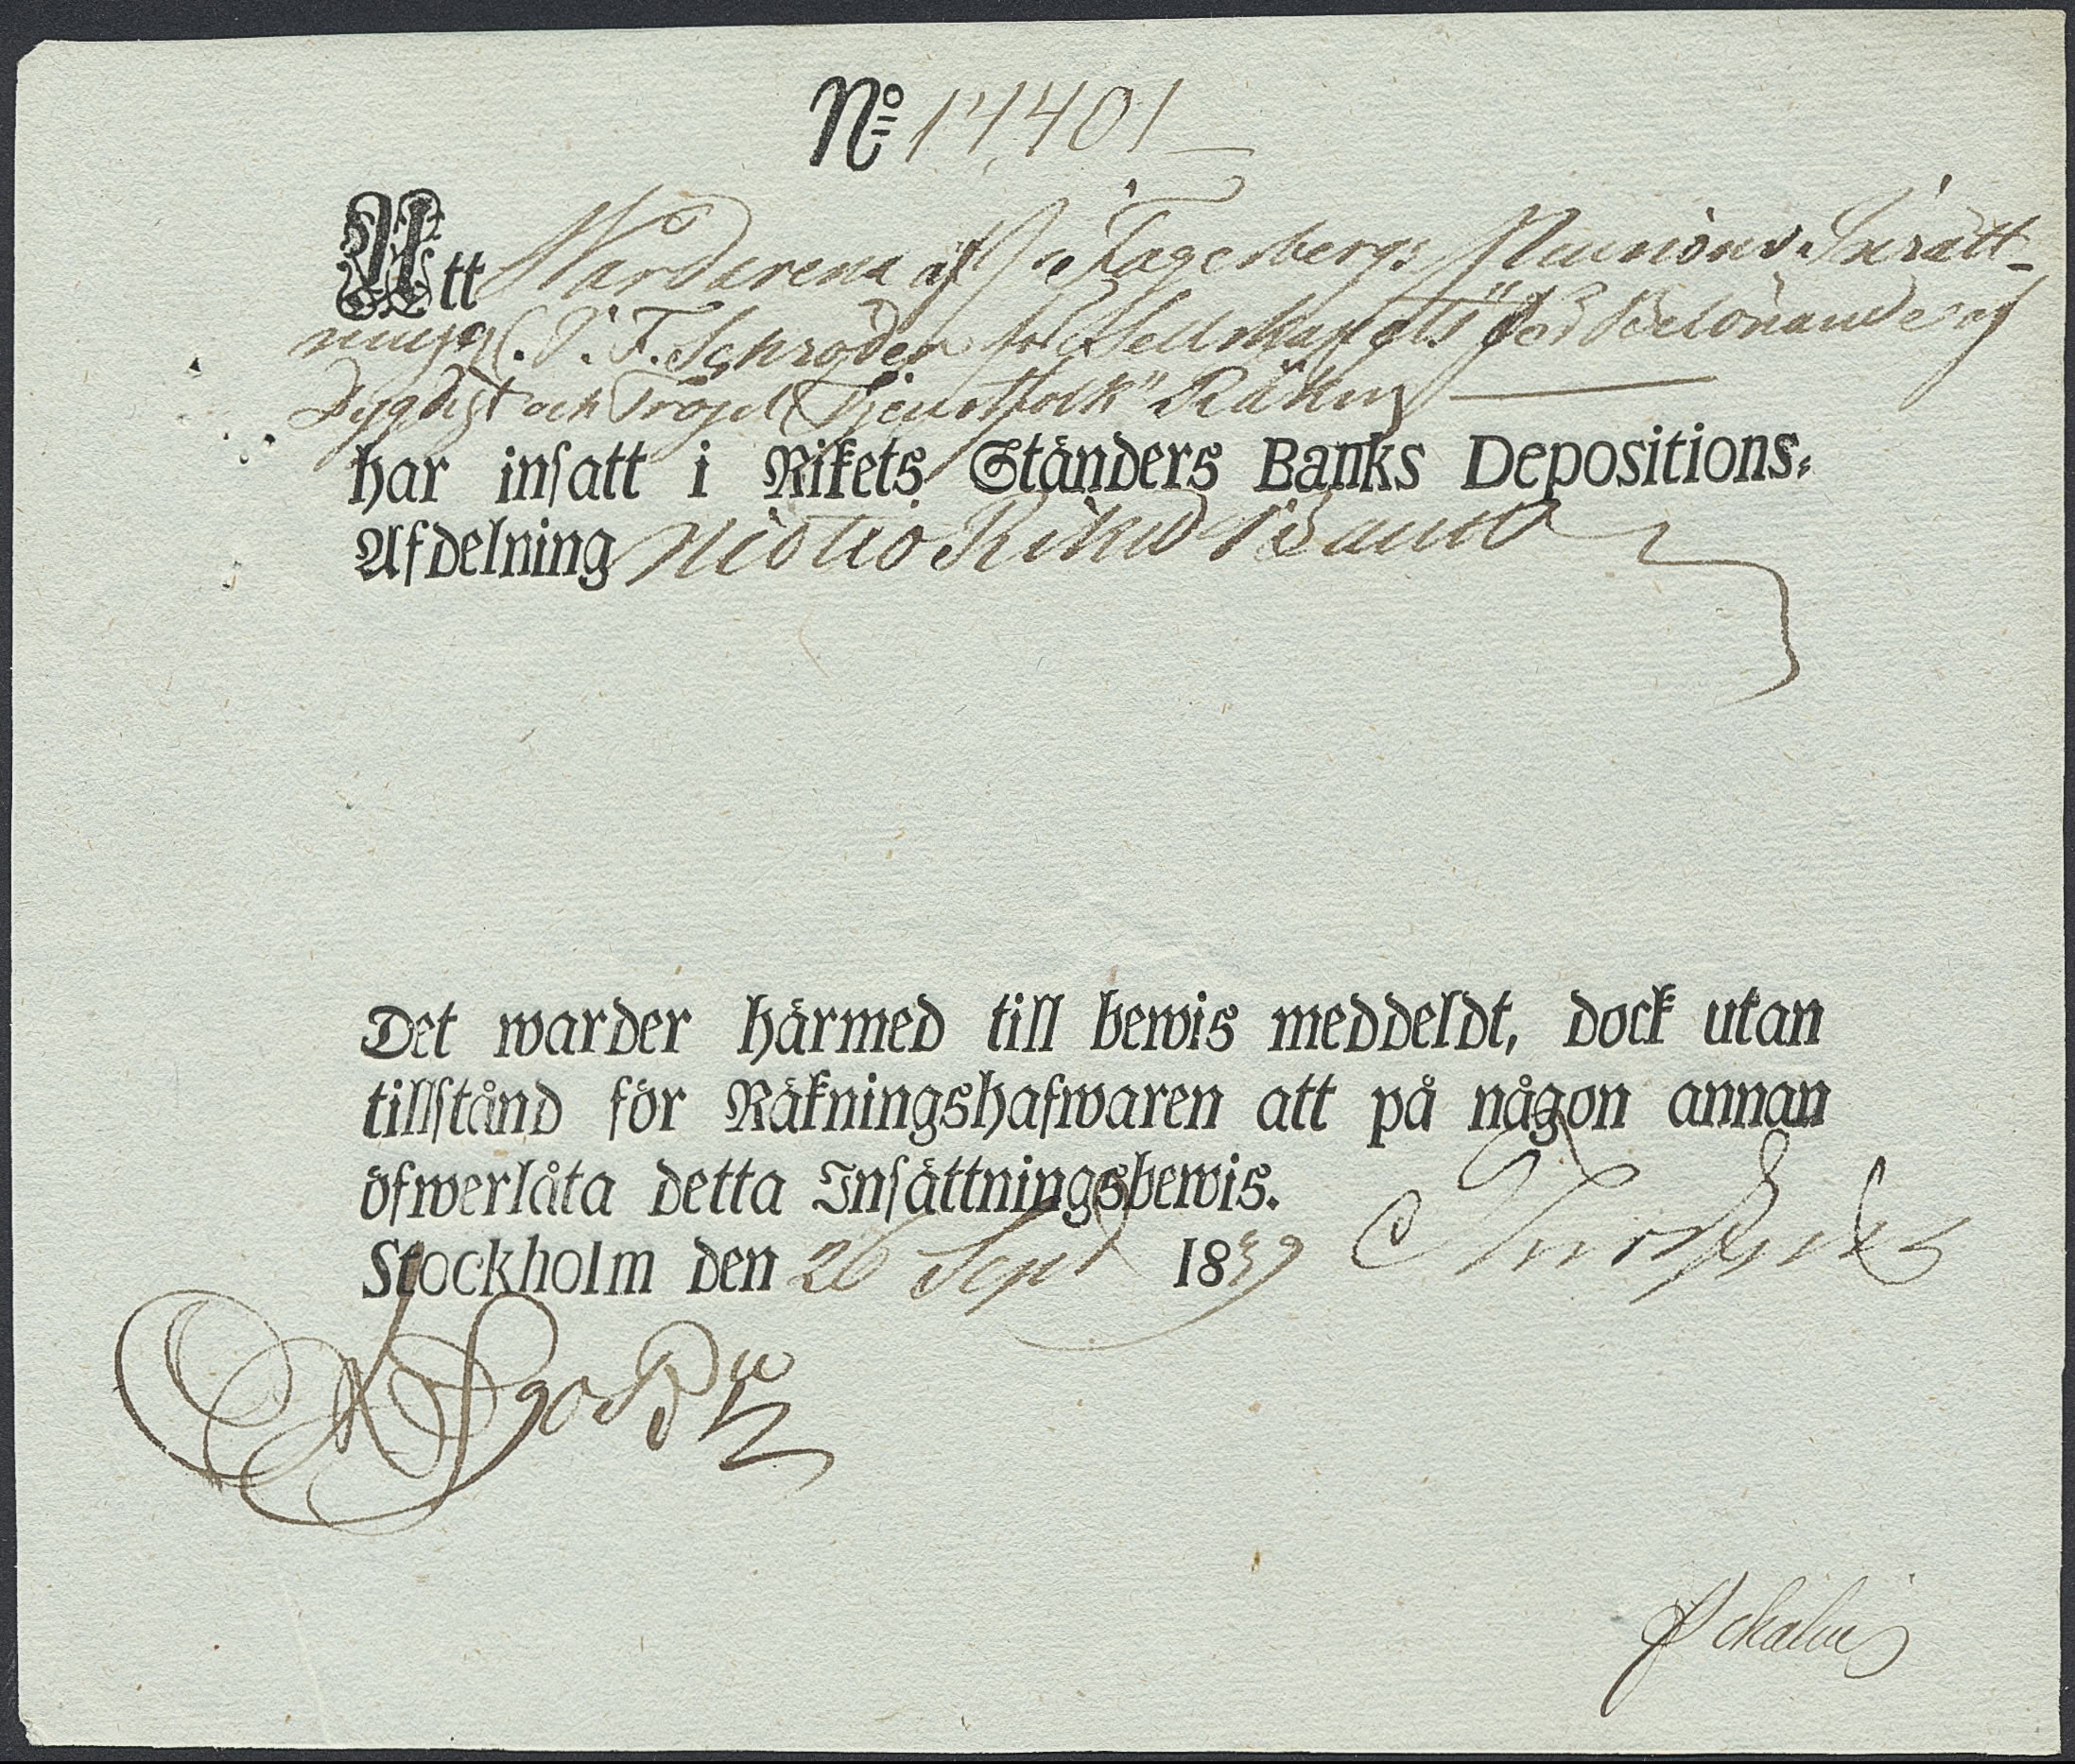 No 14,401
Att Wärdarena af Fagerbergs Numismv Inrätt-
ning C. P. F. Schröder för Sellskapets "för Belönande af
Dygdigt och Trogit Tjenstfolk" Räkng
har insatt i Rikets Ständers Banks Depositions-
Afdelning Niotio Rikd Banco
Det warder härmed till bewis meddeldt, dock utan
tillstånd för Räkningshafwaren att på någon annan
öfwerlåta detta Insättningsbewis.
Stockholm den 26 Sept 1839